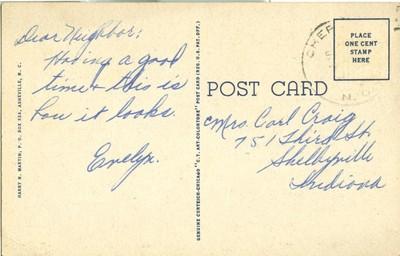 Dear Neighbor;
Having a good
time & this is
how it looks.
Evelyn.
HARRY R. MARTIN, P. O. BOX 324, ASHEVILLE, N. C.
GENUINE CURTEICH-CHICAGO "C.T. ART-COLORTONE" POST CARD (REG. U.S. PAT. OFF.)
POST CARD
PLACE
ONE CENT
STAMP
HERE
CHER
N. C.
Mrs. Carl Craig
751 Third St.
Shelbyville
Indiana